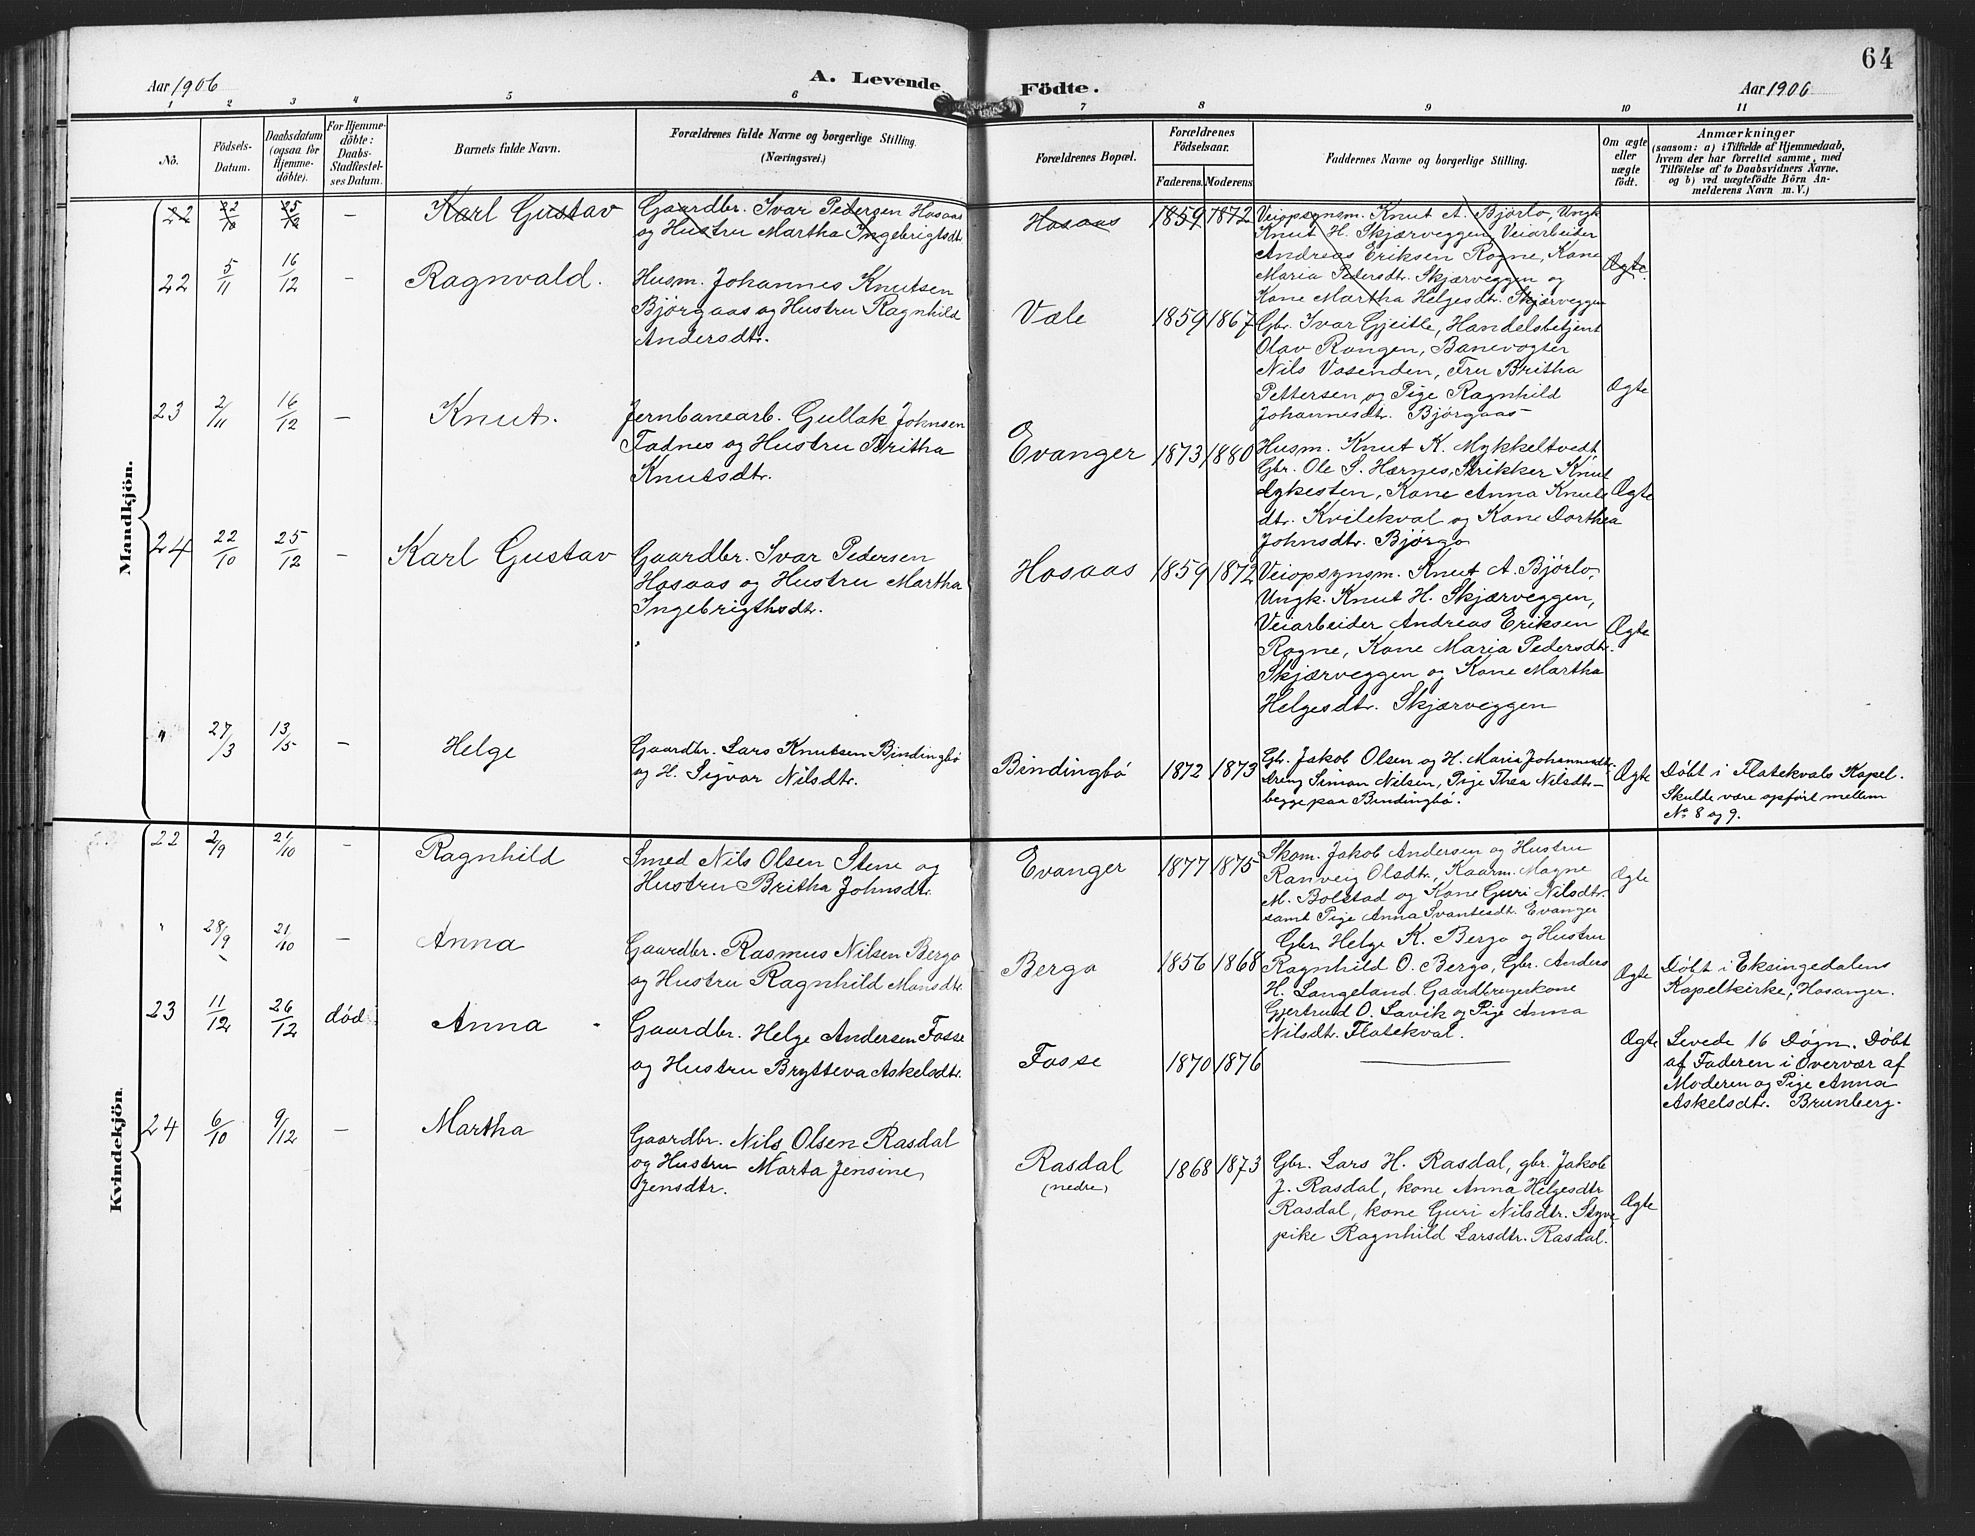 64
Aar 1906
A. Levende Födte.
Aar 1906
1 2 3 4 5 6 7 8 9 10 11
No.
Födsels-Datum.
Daabsdatum (ogsaa for Hjemme-döbte).
For Hjemme-döbte: Daabs-Stadfæstel-ses Datum.
Barnets fulde Navn.
Forældrenes fulde Navne og borgerlige Stilling.
(Næringsvei.)
Forældrenes Bopæl.
Forældrenes Födselsaar.
Faderens. Moderens.
Faddernes Navne og borgerlige Stilling.
Om ægte eller uægte födt.
Anmærkninger
(saasom: a) i Tilfælde af Hjemmedaab,
hvem der har forrettet samme, med
Tilföielse af to Daabsvidners Navne.
og b) ved uægtefödte Börn An-
melderens Navn m. V.)
Mandkjön.
22 22/10 25/12 — Karl Gustav
Gaardbr. Ivar Pedersen Hosaas
og Hustru Martha Ingebrigtsdt.
Hosaas 1859 1872
Veiopsynsm. Knut A. Bjørlo, Ungk.
Knut H. Skjærveggen, Veiarbeider
Andreas Eriksen Rogne, Kone
Maria Pedersdt. Skjærveggen og
Kone Martha Helgesdt. Skjærveggen
Ægte.
22 5/11 16/12 - Ragnvald.
Husm. Johannes Knutsen
Bjørgaas og Hustru Ragnhild
Andersdt.
Væle 1859 1867
Gbr. Ivar Gjeitle, Handelsbetjent
Olav Rongen, Banevogter
Nils Vasenden, Fru Britha
Pettersen og Pige Ragnhild
Johannesdt. Bjørgaas
Ægte
23 2/11 16/12 — Knut.
Jernbanearb. Gullak Johnsen
Fadnes og Hustru Britha
Knutsdt.
Evanger 1873 1880
Husm. Knut K. Mykkeltvedt,
Gbr. Ole S. Hærnes, Strikker Knut
Kone Anna Knuts
dt. Kvilekval og Kone Dorthea
Johnsdt. Bjørgo
Ægte
24 22/10 25/12 - Karl Gustav
Gaardbr. Ivar Pedersen
Hosaas og Hustru Martha
Ingebrigthsdt.
Hosaas 1859 1872
Veiopsynsm. Knut A. Bjørlo,
Ungk. Knut H. Skjærveggen,
Veiarbeider Andreas Eriksen
Rogne, Kone Maria Pedersdt.
Skjærveggen og Kone Martha
Helgesdt. Skjærveggen
Ægte
" 27/3 13/5 — Helge
Gaardbr. Lars Knutsen Bindingbø
og H. Sigvor Nilsdt.
Bindingbø 1872 1873
Gbr. Jakob Olsen og H. Maria Johannesdt.
Dreng Simon Nilsen, Pige Thea Nilsdt.
begge paa Bindingbø.
Ægte
Døbt i Flatekvals Kapel.
Skulde være opført mellem
No 8 og 9.
Kvindekjön.
22 2/9 21/10 - Ragnhild
Smed Nils Olsen Stene og
Hustru Britha Johnsdt.
Evanger 1877 1875
Skom. Jakob Andersen og Hustru
Ranveig Olsdt., Kaarm. Magne
M. Bolstad og Kone Guri Nilsdt.
samt Pige Anna Svantesdt. Evanger
Ægte
" 28/9 21/10 — Anna
Gaardbr. Rasmus Nilsen Bergo
og Hustru Ragnhild Monsdt.
Bergo 1856 1868
Gbr. Helge K. Bergo og Hustru
Ragnhild O. Bergo, Gbr. Anders
H. Langeland. Gaardbrugerkone
Gjertrud O. Lavik og Pige Anna
Nilsdt. Flatekval.
Ægte
Døbt i Eksingedalens
Kapelkirke, Hosanger.
23 11/12 26/12 død Anna
Gaardbr. Helge Andersen Fosse
og Hustru Brytteva Askelsdt.
Fosse 1870 1876
Ægte
Levede 16 Døgn. Døbt
af Faderen i Overvær af
Moderen og Pige Anna
Askelsdt. Brunberg.
24 6/10 9/12 — Martha
Gaardbr. Nils Olsen Rasdal
og Hustru Marta Jensine
Jensdtr.
Rasdal
(nedre)
1868 1873
Gbr. Lars H. Rasdal, gbr. Jakob
J. Rasdal, kone Anna Helgesdtr
Rasdal, kone Guri Nilsdtr. Styve
pike Ragnhild Larsdtr. Rasdal.
Ægte